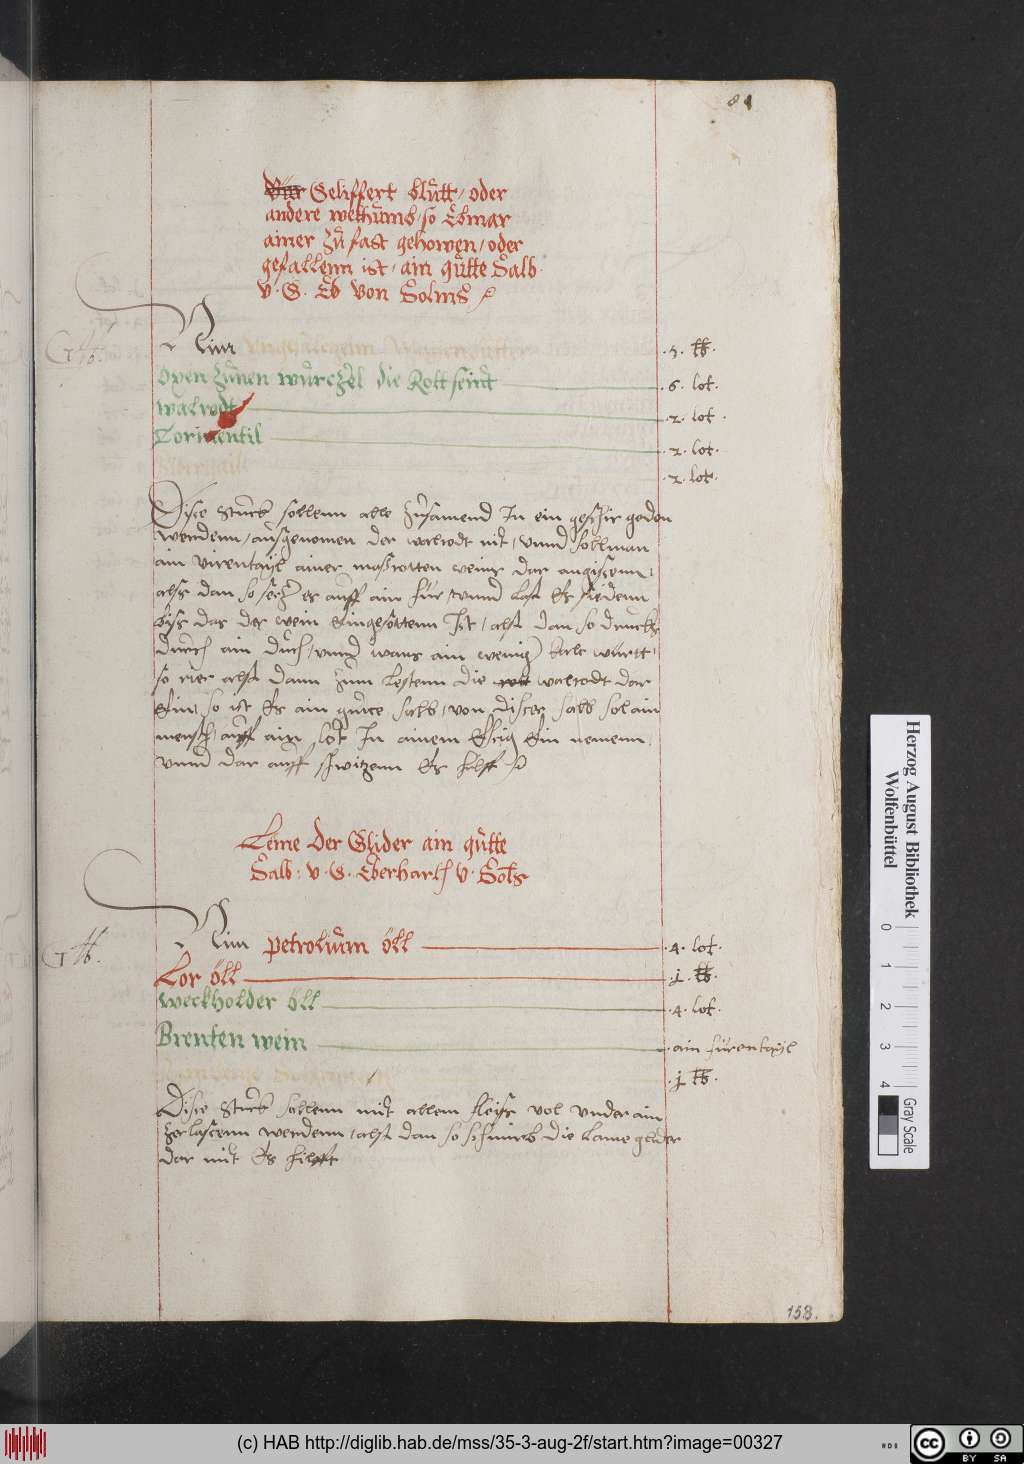 81
Geliffert blůtt / oder
andere wethůmb / so Ebmar
ainer zů fast gehowen / oder
gefallenn ist / ain gůtte Salb
v. G. Eb von Solms
Nim Wagenschmer .3. ℔.
open Zůnen wůrczel die Rott seind .6. lot.
walrodt .2. lot.
Tormentil .2. lot.
.2. lot.
Disse stuck sollenn alle zůsamend In ein geschir gedon
werdenn / ausgenomen der walrodt nit / vnnd soll man
ain virentayl ainer mass rotten weins dar angissenn
alss dan so setz es auff ain für / vnnd lass Es siedenn
biss das der wein Eingesottenn Ist / alss dan so druckhs
durch ain duch / vnnd wans ain wenig kalt wurtt
so rier alss dann zům lestenn die walrodt dar
Ein / so ist Es ain gůtte salb / von disser salb sol ain
mensch auff ain lot In ainem Essig Ein nemenn
vnnd dar auff schwitzenn Es hilfft
Leme der Glider ain gůtte
Salb: v. G. Eberhart v. Solms
Nim petrolium öll .4. lot.
Lor öll .j. ℔.
weckholder öll .4. lot.
Brenten wein .ain fürentayl
.j. ℔.
Disse stuck sollenn mit allem fleiss vol vnder ain
zerlassenn werdenn / alss dan so schmirb die lame gelider
dar mit Es hilfft
158.
Herzog August Bibliothek
Wolfenbüttel
0 1 2 3 4
Gray Scale
(c) HAB http://diglib.hab.de/mss/35-3-aug-2f/start.htm?image=00327
cc BY SA